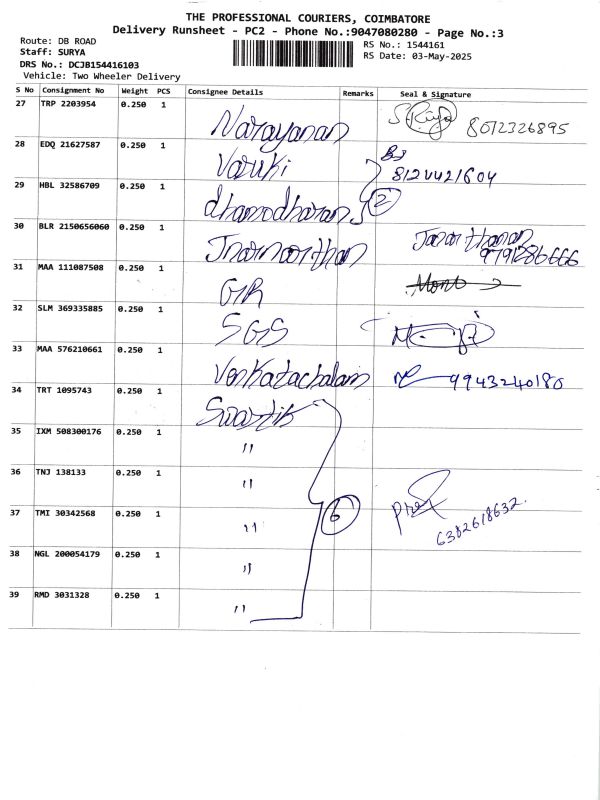 THE PROFESSIONAL COURIERS, COIMBATORE
Delivery Runsheet - PC2 - Phone No.:9047080280 - Page No.:3
Route: DB ROAD
RS No.: 1544161
Staff: SURYA
RS Date: 03-May-2025
DRS No.: DCJB154416103
Vehicle: Two Wheeler Delivery
S No Consignment No Weight PCS Consignee Details Remarks Seal & Signature
27 TRP 2203954 0.250 1 Narayanan 8072326895
28 EDQ 21627587 0.250 1 Varuki
29 HBL 32586709 0.250 1 dhamodharan 2 8124421604
30 BLR 2150656060 0.250 1 Jnarnarthan Janarthanan 9791286666
31 MAA 111087508 0.250 1 GR
32 SLM 369335885 0.250 1 SGS
33 MAA 576210661 0.250 1 Venkatachalam 9943240180
34 TRT 1095743 0.250 1 Swastik
35 IXM 508300176 0.250 1 "
36 TNJ 138133 0.250 1 "
37 TMI 30342568 0.250 1 " 6 6382618632
38 NGL 200054179 0.250 1 "
39 RMD 3031328 0.250 1 "